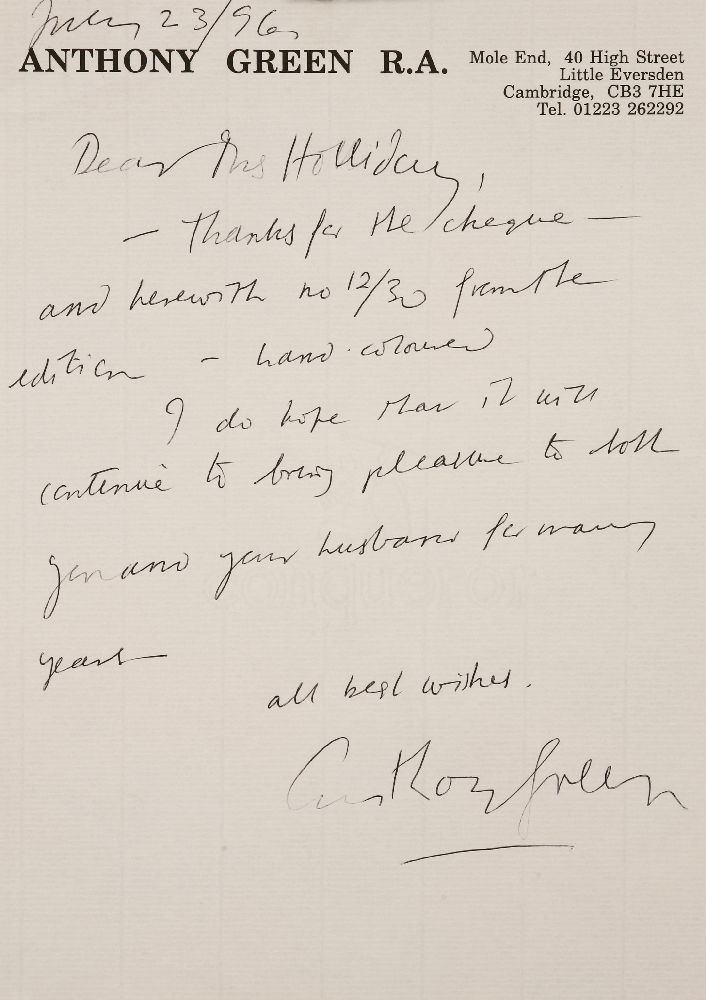 July 23/96.
ANTHONY GREEN R.A.
Mole End, 40 High Street
Little Eversden
Cambridge, CB3 7HE
Tel. 01223 262292
Dear Mrs Holliday,
– Thanks for the cheque –
and herewith no 12/30 from the
edition – hand-coloured
I do hope that it will
continue to bring pleasure to both
you and your husband for many
years –
all best wishes.
Anthony Green
conqueror